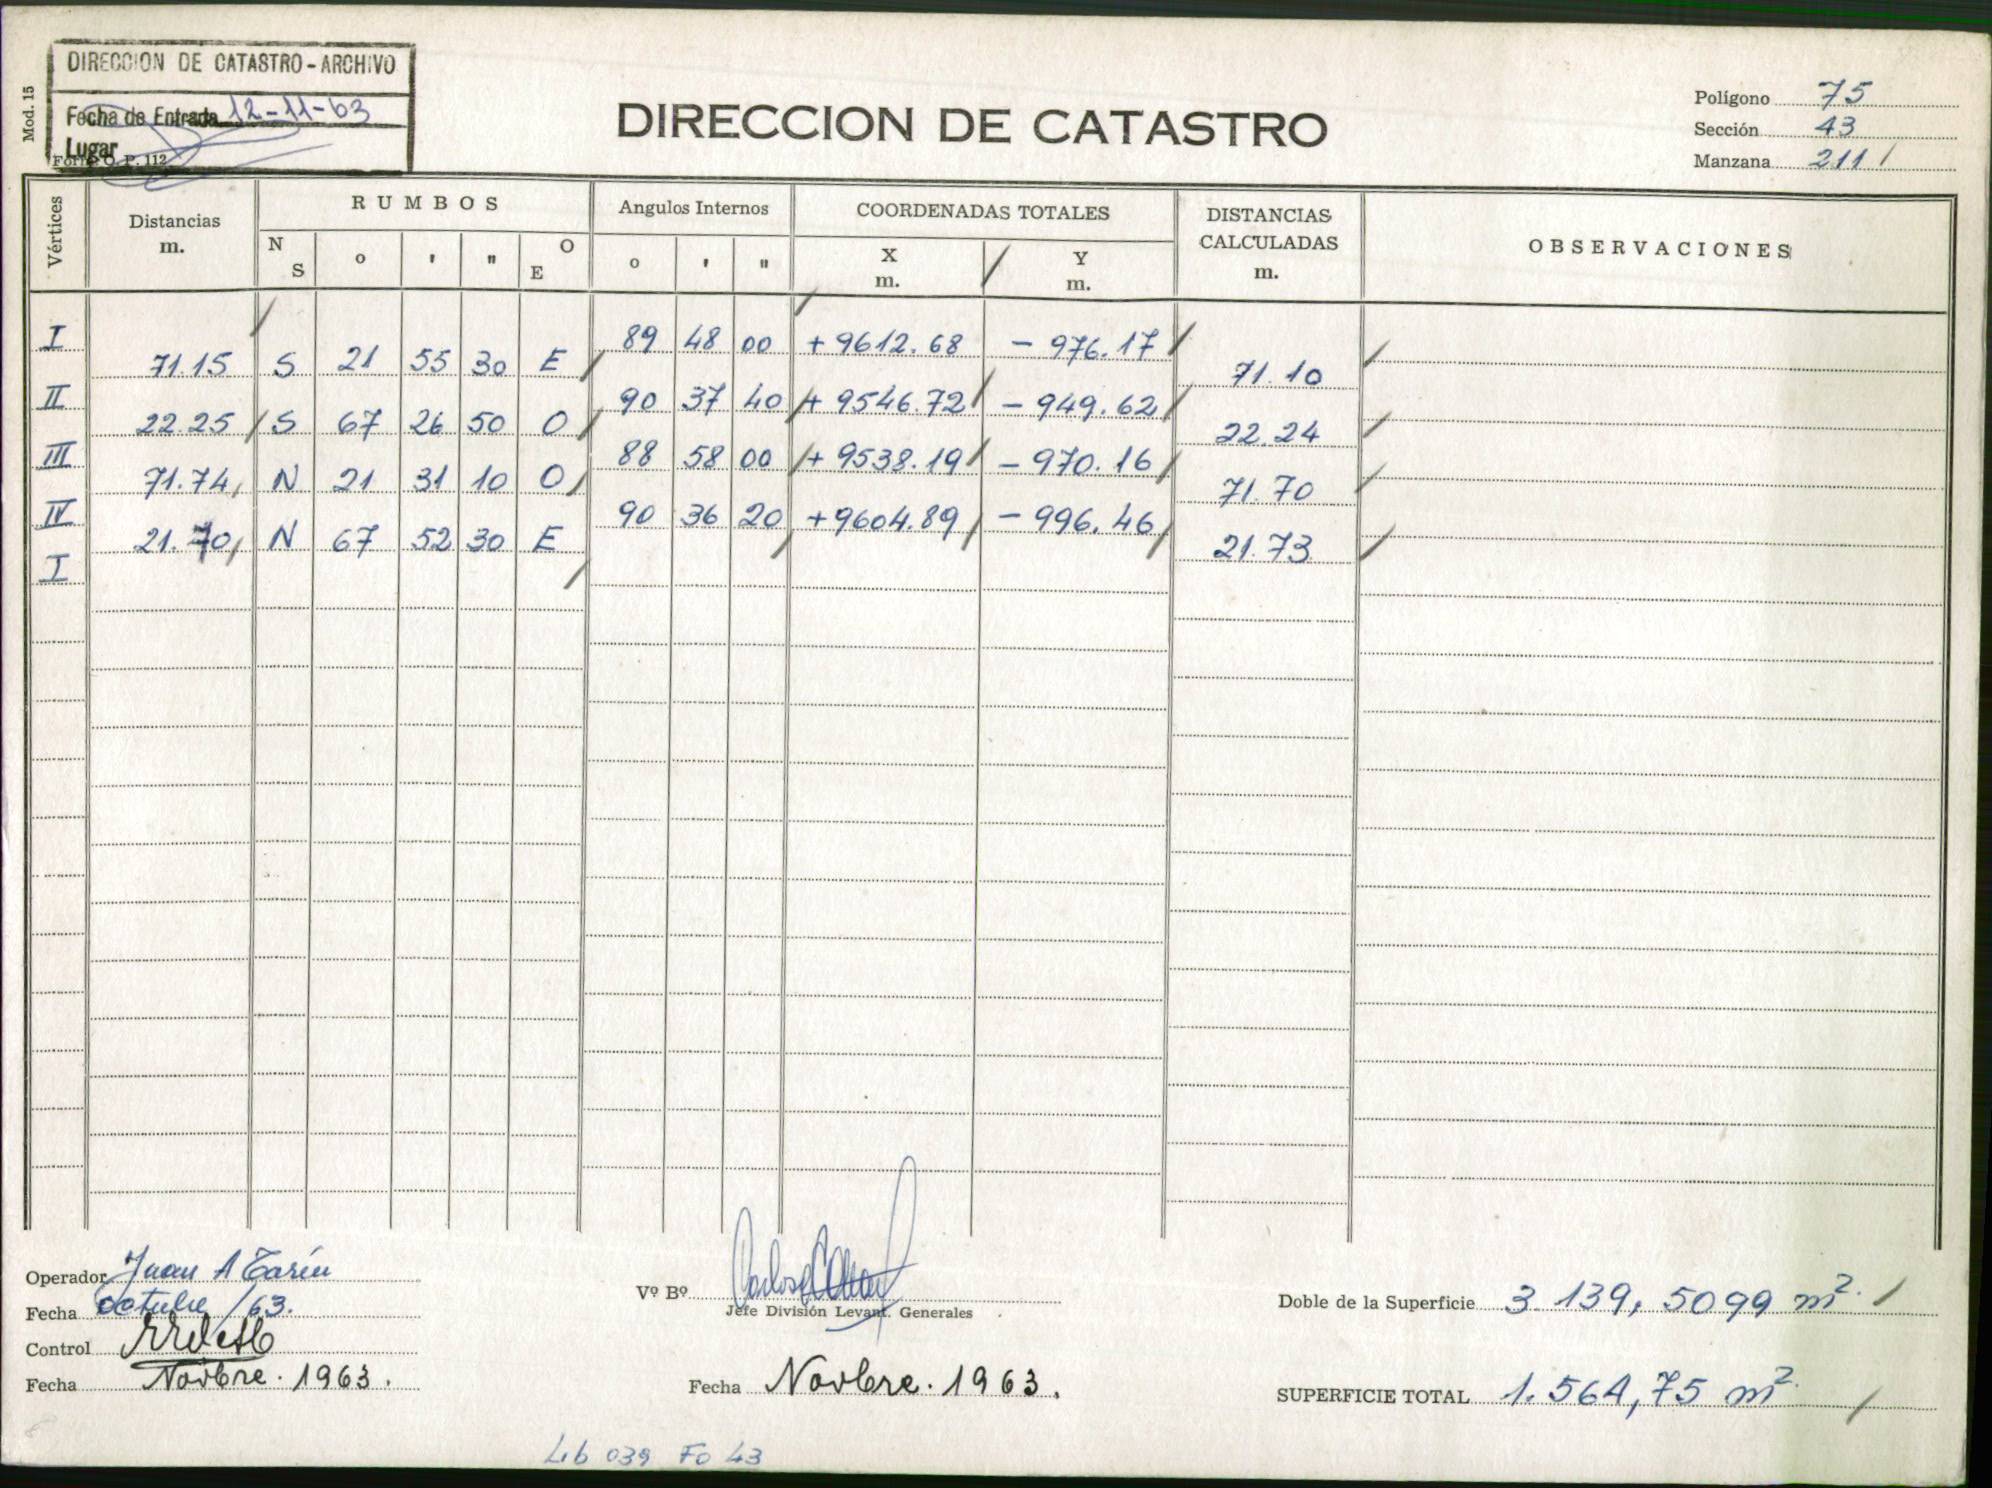 DIRECCION DE CATASTRO - ARCHIVO
Fecha de Entrada 12-11-63
Lugar
Form. O. P. 112
Mod. 15
DIRECCION DE CATASTRO
Polígono 75
Sección 43
Manzana 211
Vértices
Distancias
m.
RUMBOS
N S ° ' " O E
Angulos Internos
° ' "
COORDENADAS TOTALES
X m. Y m.
DISTANCIAS CALCULADAS
m.
OBSERVACIONES
I 89 48 00 +9612.68 -976.17
71.15 S 21 55 30 E 71.10
II 90 37 40 +9546.72 -949.62
22.25 S 67 26 50 O 22.24
III 88 58 00 +9538.19 -970.16
71.74 N 21 31 10 O 71.70
IV 90 36 20 +9604.89 -996.46
21.70 N 67 52 30 E 21.73
I
Operador Juan A Tarín
Fecha octubre/63.
Control
Fecha Novbre. 1963.
Vº Bº
Jefe División Levant. Generales
Fecha Novbre. 1963.
Doble de la Superficie 3.139,5099 m2.
SUPERFICIE TOTAL 1.564,75 m2.
Lib 039 Fo 43